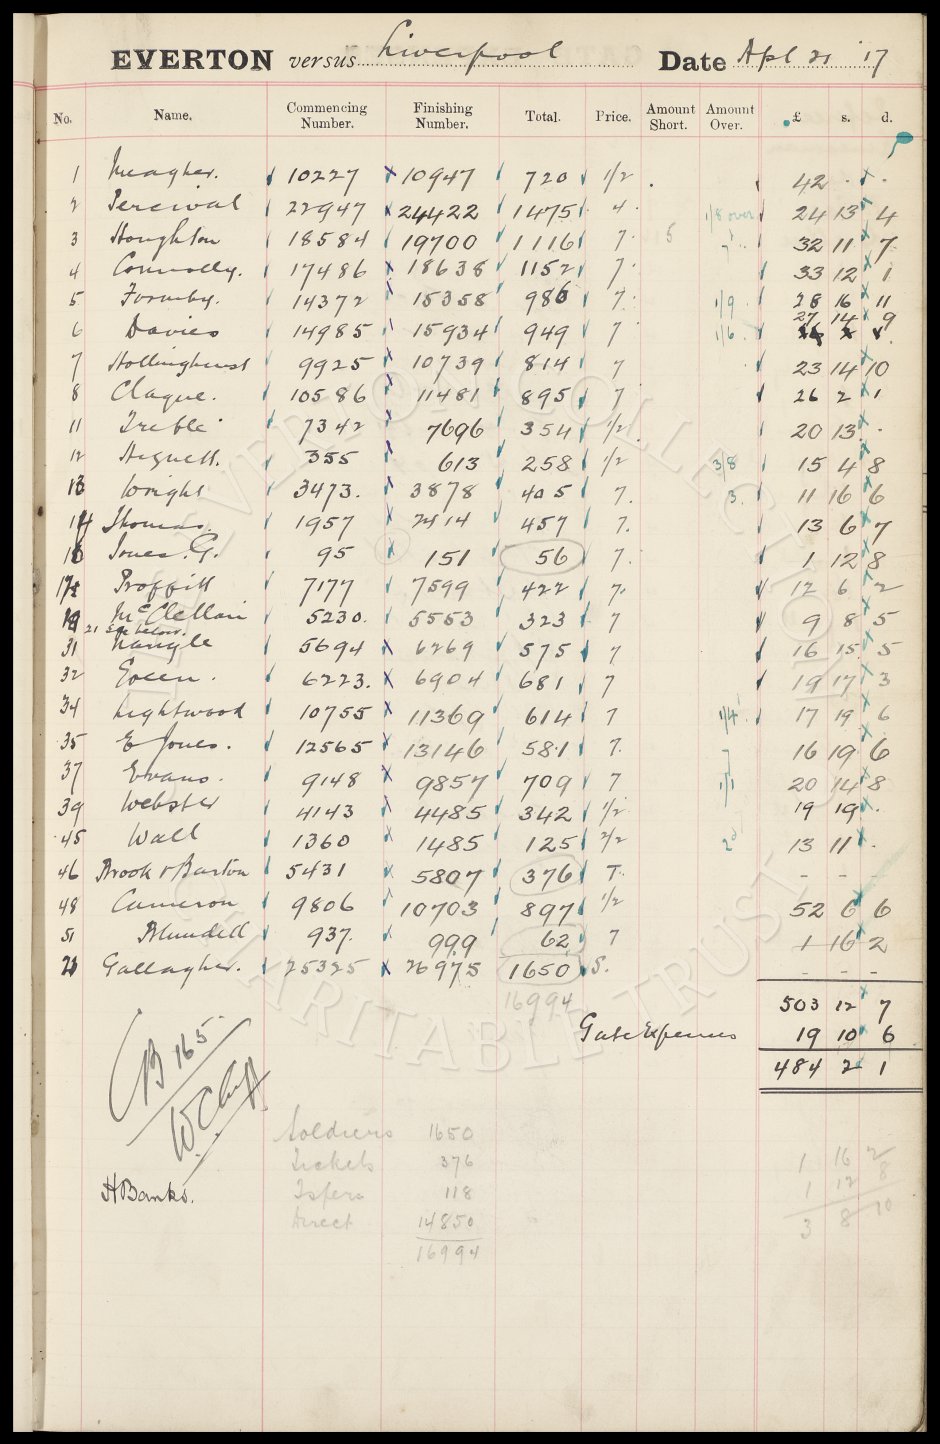 EVERTON versus Liverpool Date Apl 21 '17
No. Name. Commencing Number. Finishing Number. Total. Price. Amount Short. Amount Over. £ s. d.
1 Meagher. 10227 10947 720 1/2 42 . .
2 Percival 22947 24422 1475 4 1/8 over 24 13 4
3 Houghton 18584 19700 1116 7 5 32 11 7
4 Connolly. 17486 18638 1152 7 33 12 1
5 Formby. 14372 15358 986 7 1/9 28 16 11
6 Davies 14985 15934 949 7 1/6 27 14 9
7 Hollinghurst 9925 10739 814 7 23 14 10
8 Clague. 10586 11481 895 7 26 2 1
11 Treble 7342 7696 354 1/2 20 13 .
12 Hignett. 355 613 258 1/2 3/8 15 4 8
13 Wright 3473. 3878 405 7. 3. 11 16 6
14 Thomas. 1957 2414 457 7. 13 6 7
Jones. G. 95 151 56 7 1 12 8
17 Proffitt 7177 7599 422 7. 12 6 2
McClellan 5230. 5553 323 7 9 8 5
21 See below.
31 Nangle 5694 6269 575 7 16 15 5
32 Green. 6223. 6904 681 7 19 17 3
34 Lightwood 10755 11369 614 7 1/4 17 19 6
35 E Jones. 12565 13146 581 7. 16 19 6
37 Evans. 9148 9857 709 7 1/1 20 14 8
39 Webster 4143 4485 342 1/2 19 19 .
45 Wall 1360 1485 125 2/2 2d 13 11 .
46 Brook & Barton 5431 5807 376 T. - - -
48 Cameron 9806 10703 897 1/2 52 6 6
51 Blundell 937. 999 62 7 1 16 2
21 Gallagher. 25325 26975 1650 S. - - -
16994 503 12 7
Gate Expenses 19 10 6
484 2 1
B 165
W.C. Cuff
H Banks.
Soldiers 1650
Tickets 376 1 16 2
Tsfers 118 1 12 8
Direct 14850 3 8 10
16994
EVERTON COLLECTION CHARITABLE TRUST